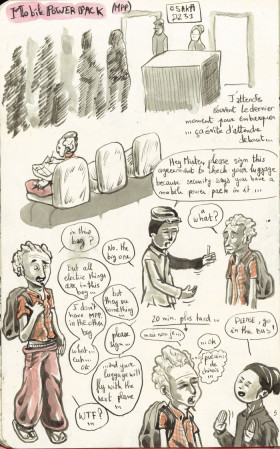 Mobile POWER PACK
(MPP)
OSAKA
D231
J'attends
souvent le dernier
moment pour embarquer
... ça évite d'attendre
debout...
Hey Mister, please sign this
agreement to check your luggage
because security says you have a
mobile power pack in it ...
a what?
in this
bag?
No. the
big one.
But all
electric things
are in this
bag...
I don't
have MPP
in the other
bag
but
they saw
something
...
please
sign...
what...
euh...
ok
...And your
luggage will
fly with the
next plane
...
WTF?
...
20 min. plus tard...
... ok
PLEASE, go
in the bus
5